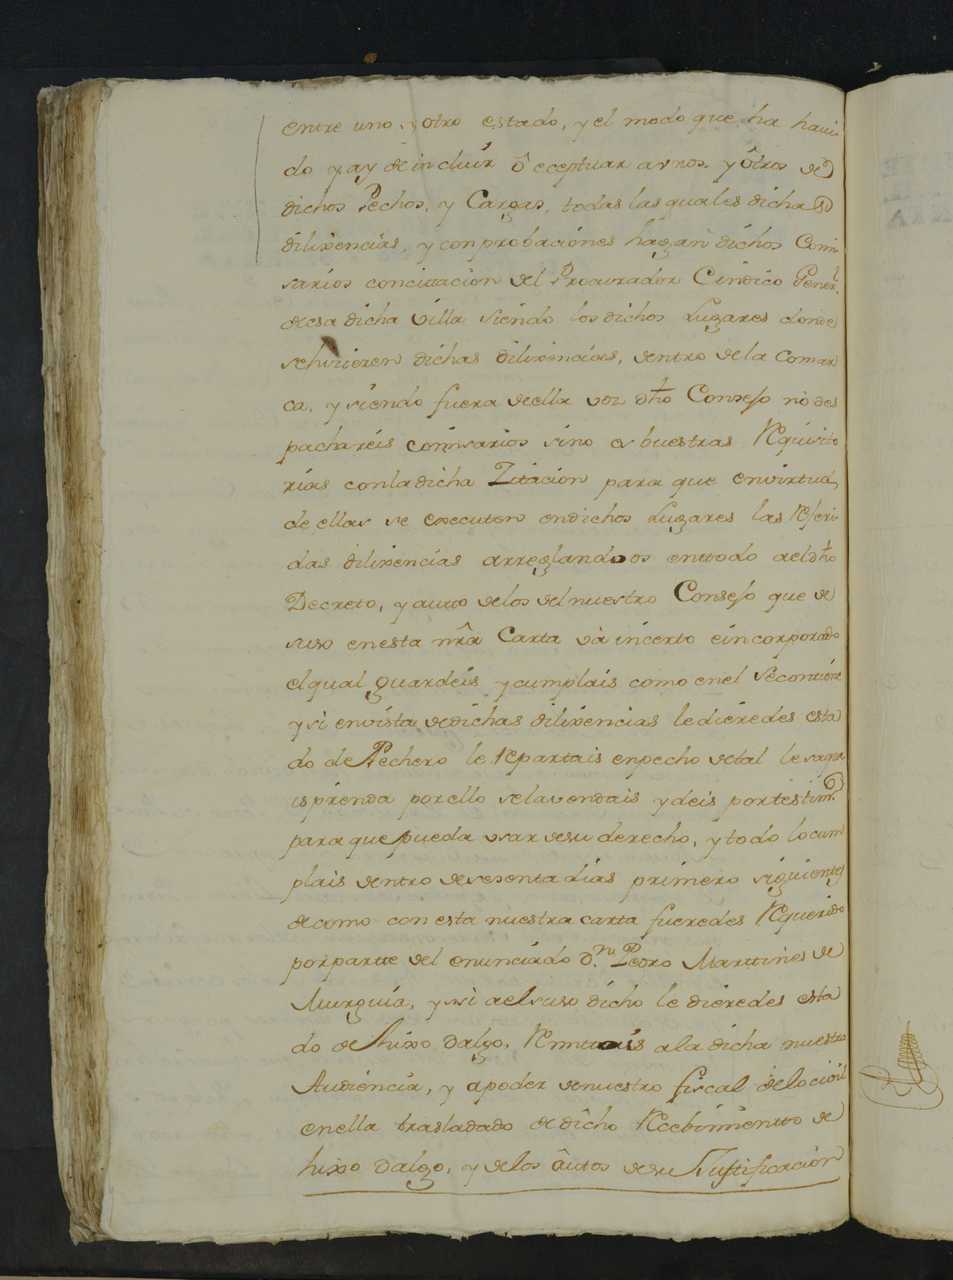 entre uno, y otro estado, y el modo que ha havi-
do y ay de incluir ô eceptuar a vnos, y ôtros de
dichos Pechos, y Cargas, todas las quales dichas
dilixencias, y conprobaciones hagan dichos Comi-
sarios concitacion del Procurador Cindico Gener.l
de esa dicha villa siendo los dichos Lugares donde
se hizieren dichas dilixencias, dentro de la Comar-
ca, y siendo fuera de ella voz dho Consejo no des
pachareis comisarios sino es buestras Requisito
rias con la dicha Zitacion para que en virtud
de ellas se executen en dichos Lugares las Referi-
das dilixencias arreglandoos en ttodo a el dho
Decreto, y autto de los del nuestro Consejo que de
suso en esta nrã Carta và incerto e incorporado
el qual guardeis y cumplais como en el se contiene
y si en vista de dichas dilixencias le dieredes esta
do de Pechero le Repartais en pecho de tal le saqu
is prenda por ello se la vendais y deis por testim.o
para que pueda vsar de su derecho, y todo lo cum
plais dentro de sesenta dias primero siguientes
de como con esta nuestra carta fueredes Requerido
por partte del enunciado D.n Pedro Marttines de
Murguia, y si a el suso dicho le dieredes esta
do de hixo dalgo, Remitais a la dicha nuestra
Audiencia, y a poder de nuestro fiscal de lo civil
en ella trasladado de dicho Recebimientto de
hixo dalgo, y de los âutos de su Justificacion